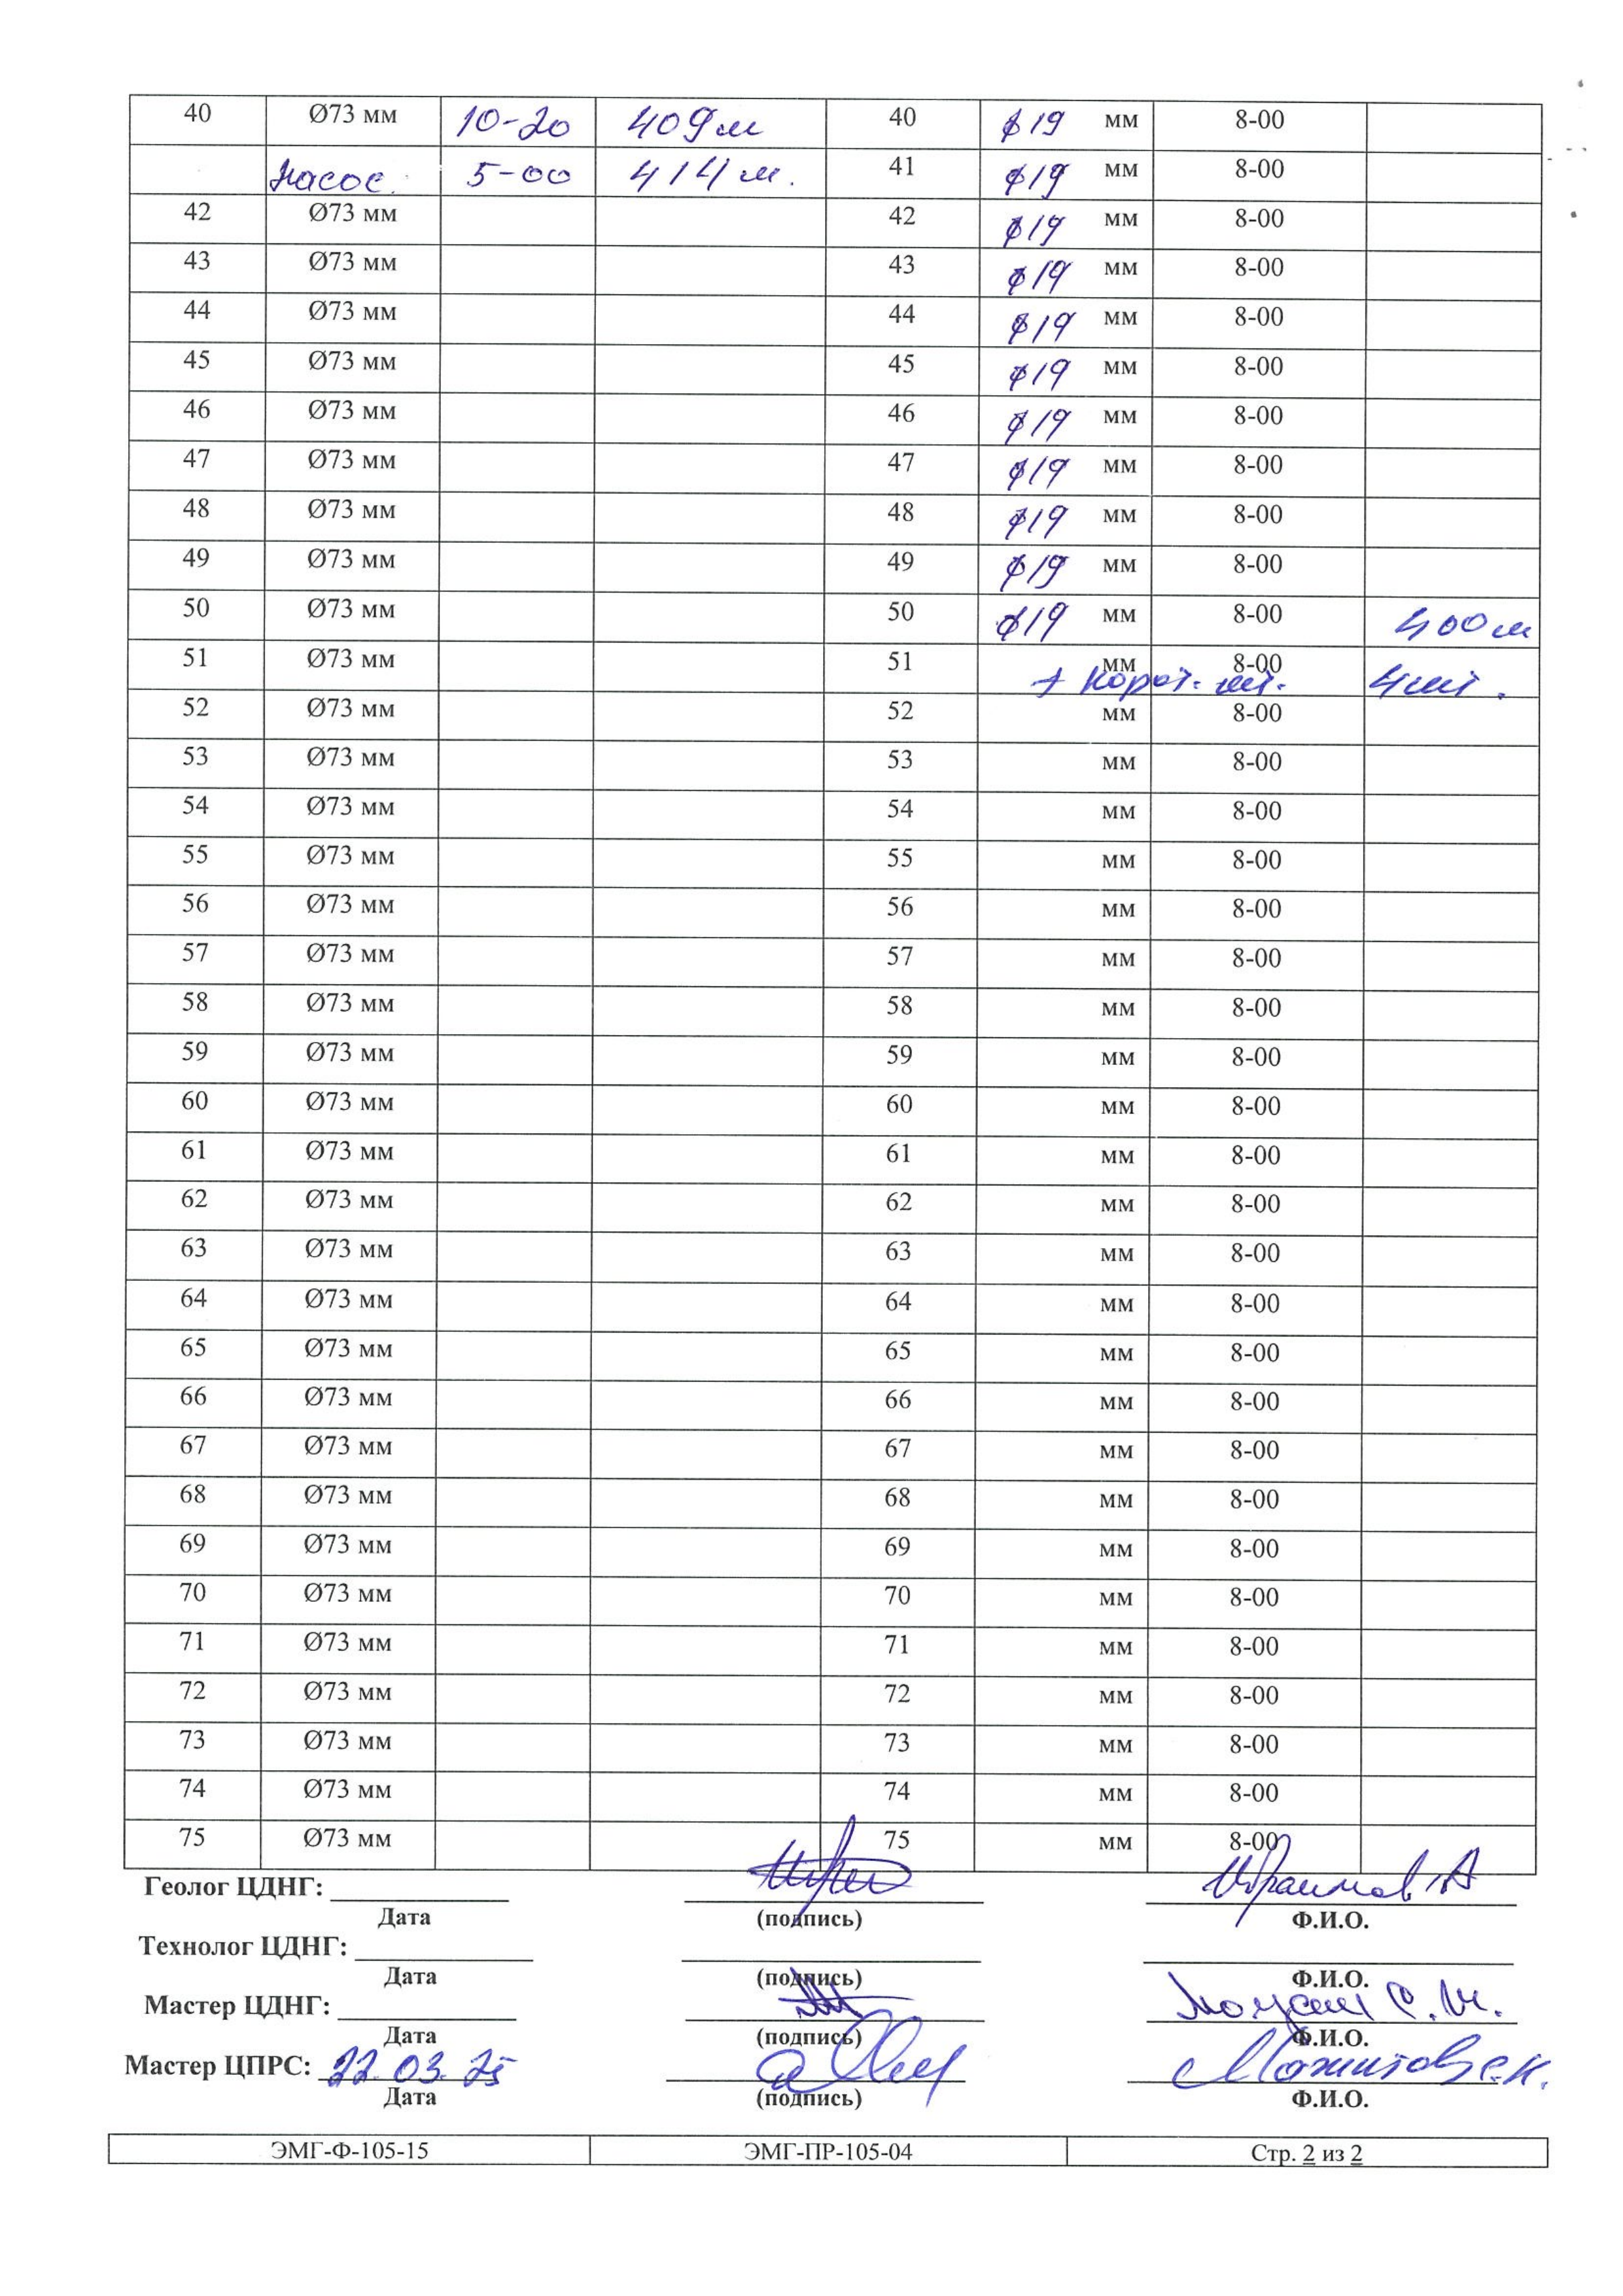 40 Ø73 мм 10-20 409м 40 ϕ19 мм 8-00
Насос. 5-00 414м. 41 ϕ19 мм 8-00
42 Ø73 мм 42 ϕ19 мм 8-00
43 Ø73 мм 43 ϕ19 мм 8-00
44 Ø73 мм 44 ϕ19 мм 8-00
45 Ø73 мм 45 ϕ19 мм 8-00
46 Ø73 мм 46 ϕ19 мм 8-00
47 Ø73 мм 47 ϕ19 мм 8-00
48 Ø73 мм 48 ϕ19 мм 8-00
49 Ø73 мм 49 ϕ19 мм 8-00
50 Ø73 мм 50 ϕ19 мм 8-00 400м
51 Ø73 мм 51 мм 8-00
+ Корот. шт. 4шт.
52 Ø73 мм 52 мм 8-00
53 Ø73 мм 53 мм 8-00
54 Ø73 мм 54 мм 8-00
55 Ø73 мм 55 мм 8-00
56 Ø73 мм 56 мм 8-00
57 Ø73 мм 57 мм 8-00
58 Ø73 мм 58 мм 8-00
59 Ø73 мм 59 мм 8-00
60 Ø73 мм 60 мм 8-00
61 Ø73 мм 61 мм 8-00
62 Ø73 мм 62 мм 8-00
63 Ø73 мм 63 мм 8-00
64 Ø73 мм 64 мм 8-00
65 Ø73 мм 65 мм 8-00
66 Ø73 мм 66 мм 8-00
67 Ø73 мм 67 мм 8-00
68 Ø73 мм 68 мм 8-00
69 Ø73 мм 69 мм 8-00
70 Ø73 мм 70 мм 8-00
71 Ø73 мм 71 мм 8-00
72 Ø73 мм 72 мм 8-00
73 Ø73 мм 73 мм 8-00
74 Ø73 мм 74 мм 8-00
75 Ø73 мм 75 мм 8-00
Геолог ЦДНГ: Ибраимов А
Дата (подпись) Ф.И.О.
Технолог ЦДНГ:
Дата (подпись) Ф.И.О.
Мастер ЦДНГ:
Дата (подпись) Ф.И.О.
Мастер ЦПРС: 22.03.25
Дата (подпись) Ф.И.О.
ЭМГ-Ф-105-15 ЭМГ-ПР-105-04 Стр. 2 из 2